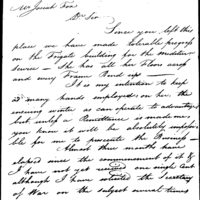 Mr Josiah Fox
Dr Sir
Since you left this
place we have made tolerable progress
on the Frigate building for the
service — She has all her Floors across
and every Frame Bard up —
It is my intention to keep
as many hands employed on her the
ensuing winter as can operate to advantage
but unless a Remittance is made
you know it will be absolutely impossi
ble for me to prosecute the Business
Almost three months have
elapsed since the commencement of it &
I have not yet recd one single Cent
although I have the Secretary
of War on the subject several times